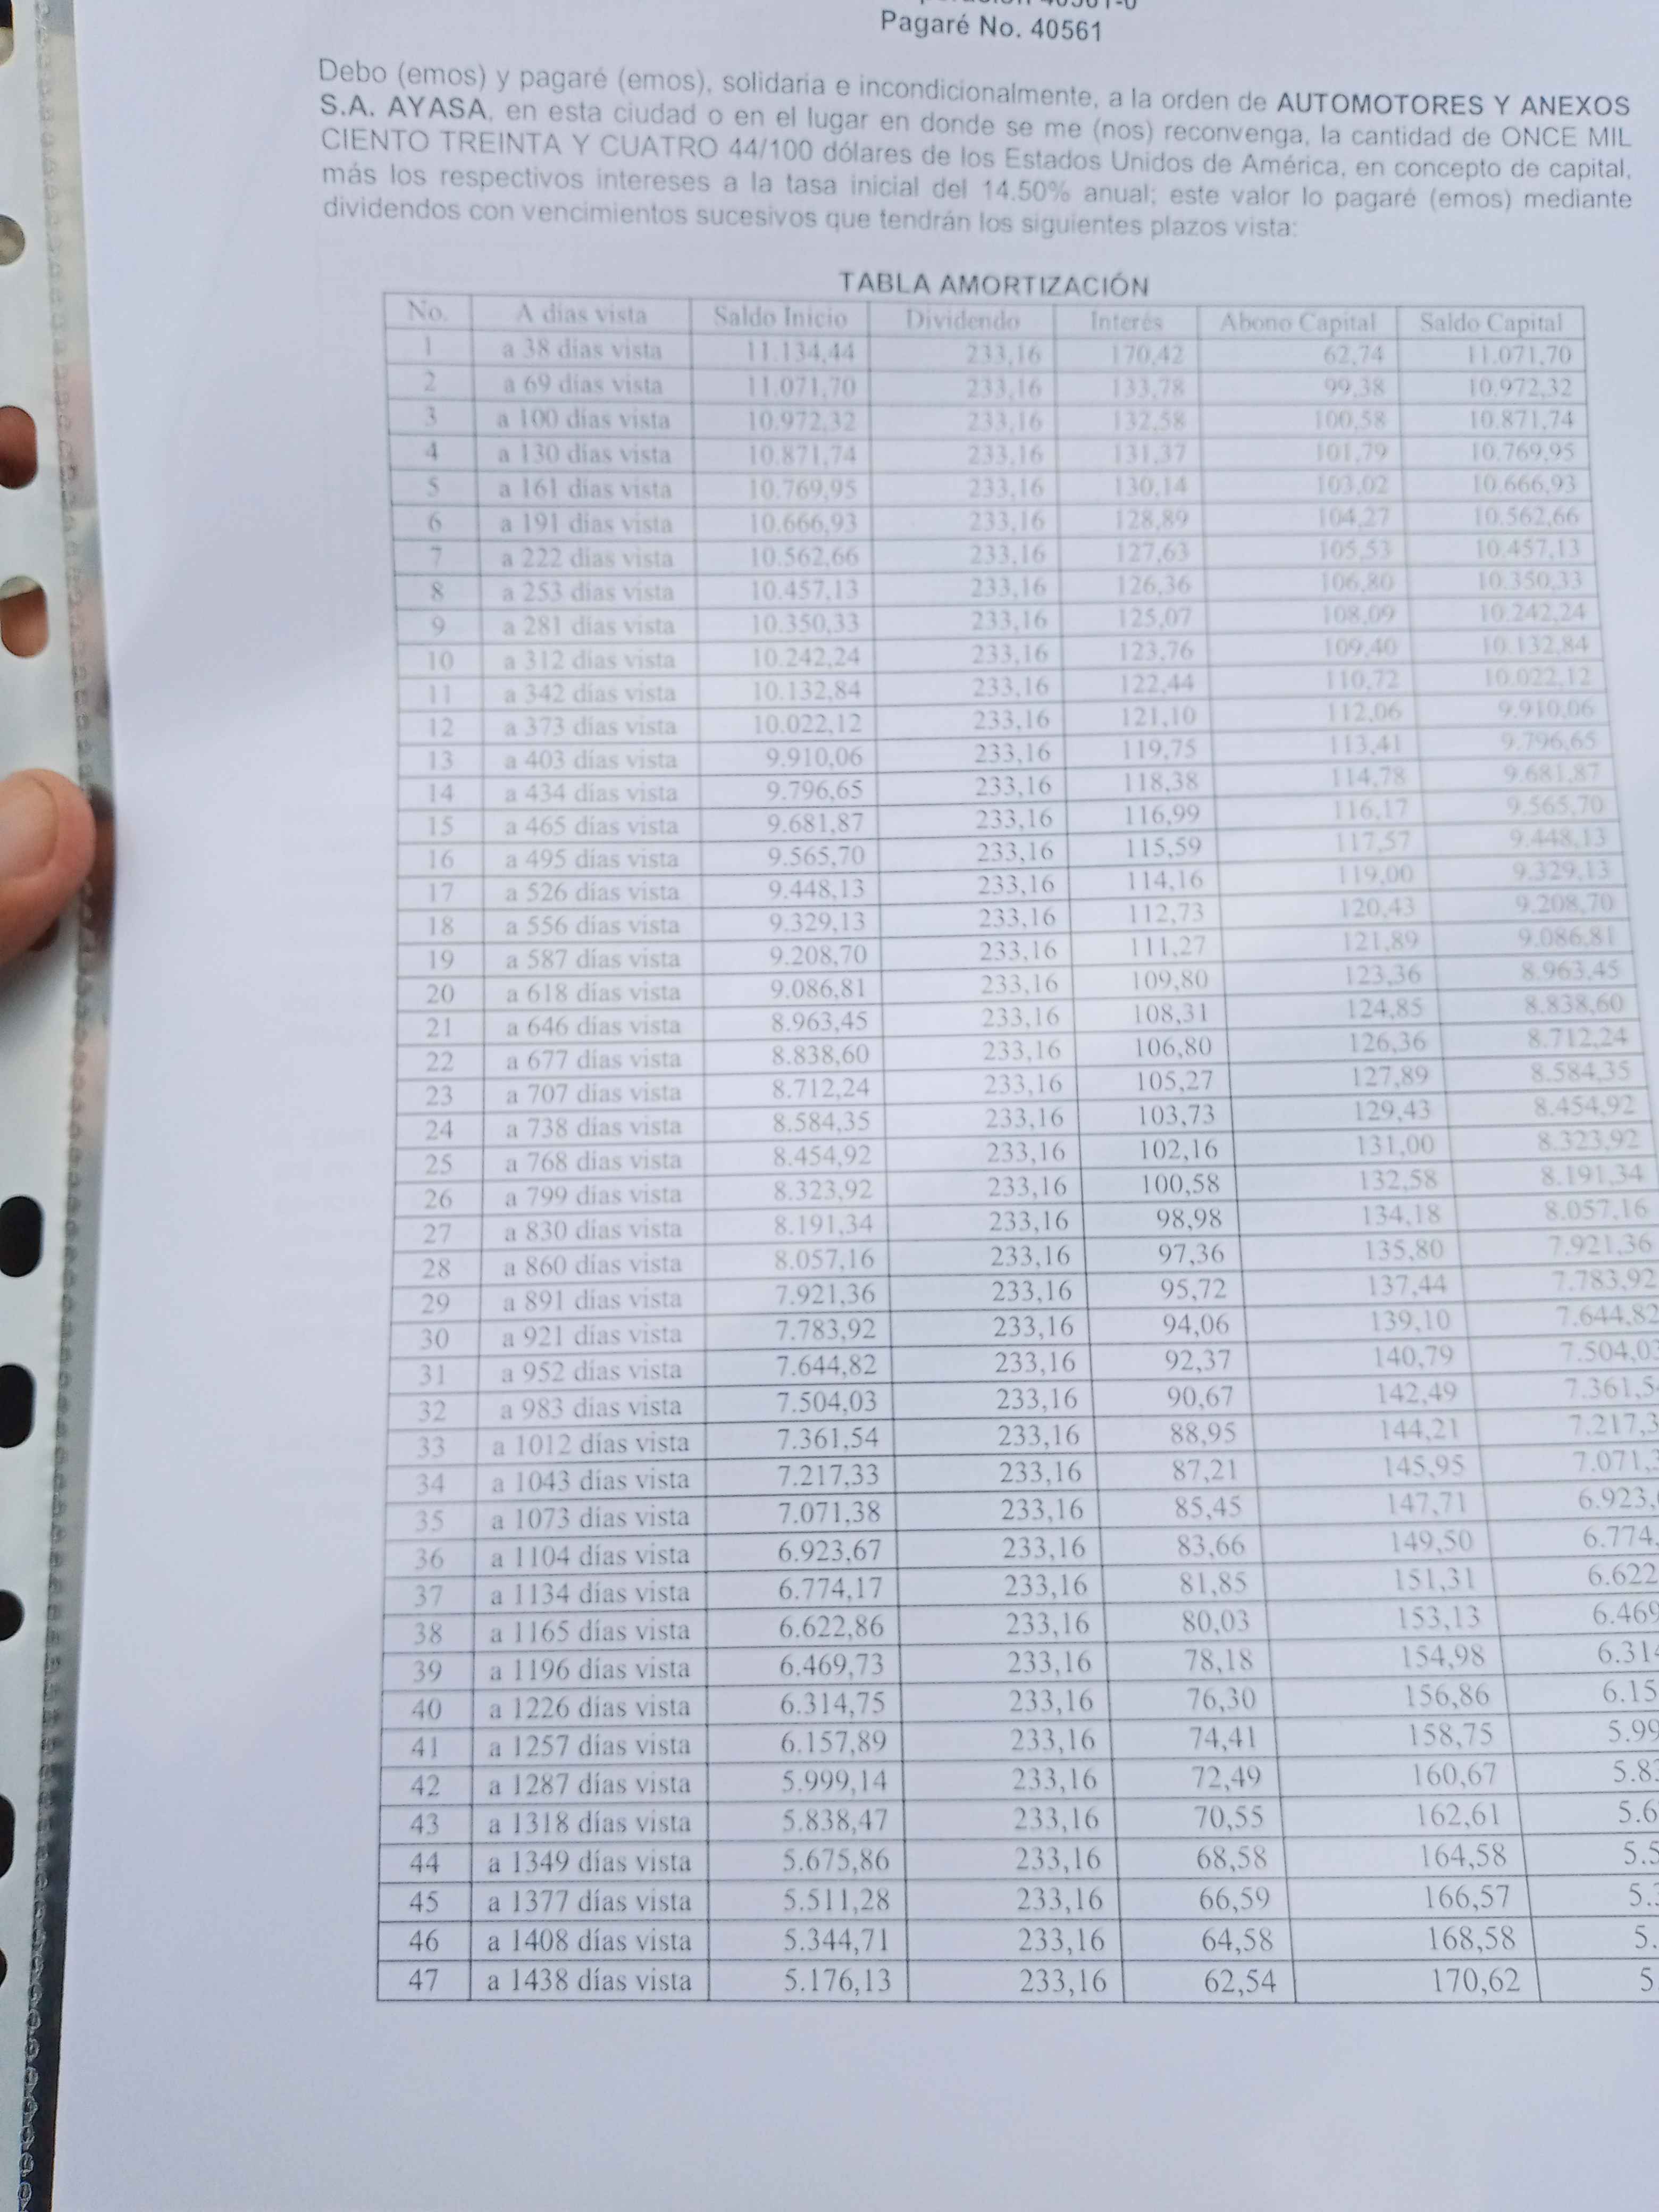 Pagaré No. 40561
Debo (emos) y pagaré (emos), solidaria e incondicionalmente, a la orden de AUTOMOTORES Y ANEXOS
S.A. AYASA, en esta ciudad o en el lugar en donde se me (nos) reconvenga, la cantidad de ONCE MIL
CIENTO TREINTA Y CUATRO 44/100 dólares de los Estados Unidos de América, en concepto de capital,
más los respectivos intereses a la tasa inicial del 14.50% anual; este valor lo pagaré (emos) mediante
dividendos con vencimientos sucesivos que tendrán los siguientes plazos vista:
TABLA AMORTIZACIÓN
No. A días vista Saldo Inicio Dividendo Interés Abono Capital Saldo Capital
1 a 38 días vista 11.134,44 233,16 170,42 62,74 11.071,70
2 a 69 días vista 11.071,70 233,16 133,78 99,38 10.972,32
3 a 100 días vista 10.972,32 233,16 132,58 100,58 10.871,74
4 a 130 días vista 10.871,74 233,16 131,37 101,79 10.769,95
5 a 161 días vista 10.769,95 233,16 130,14 103,02 10.666,93
6 a 191 días vista 10.666,93 233,16 128,89 104,27 10.562,66
7 a 222 días vista 10.562,66 233,16 127,63 105,53 10.457,13
8 a 253 días vista 10.457,13 233,16 126,36 106,80 10.350,33
9 a 281 días vista 10.350,33 233,16 125,07 108,09 10.242,24
10 a 312 días vista 10.242,24 233,16 123,76 109,40 10.132,84
11 a 342 días vista 10.132,84 233,16 122,44 110,72 10.022,12
12 a 373 días vista 10.022,12 233,16 121,10 112,06 9.910,06
13 a 403 días vista 9.910,06 233,16 119,75 113,41 9.796,65
14 a 434 días vista 9.796,65 233,16 118,38 114,78 9.681,87
15 a 465 días vista 9.681,87 233,16 116,99 116,17 9.565,70
16 a 495 días vista 9.565,70 233,16 115,59 117,57 9.448,13
17 a 526 días vista 9.448,13 233,16 114,16 119,00 9.329,13
18 a 556 días vista 9.329,13 233,16 112,73 120,43 9.208,70
19 a 587 días vista 9.208,70 233,16 111,27 121,89 9.086,81
20 a 618 días vista 9.086,81 233,16 109,80 123,36 8.963,45
21 a 646 días vista 8.963,45 233,16 108,31 124,85 8.838,60
22 a 677 días vista 8.838,60 233,16 106,80 126,36 8.712,24
23 a 707 días vista 8.712,24 233,16 105,27 127,89 8.584,35
24 a 738 días vista 8.584,35 233,16 103,73 129,43 8.454,92
25 a 768 días vista 8.454,92 233,16 102,16 131,00 8.323,92
26 a 799 días vista 8.323,92 233,16 100,58 132,58 8.191,34
27 a 830 días vista 8.191,34 233,16 98,98 134,18 8.057,16
28 a 860 días vista 8.057,16 233,16 97,36 135,80 7.921,36
29 a 891 días vista 7.921,36 233,16 95,72 137,44 7.783,92
30 a 921 días vista 7.783,92 233,16 94,06 139,10 7.644,82
31 a 952 días vista 7.644,82 233,16 92,37 140,79 7.504,03
32 a 983 días vista 7.504,03 233,16 90,67 142,49 7.361,5
33 a 1012 días vista 7.361,54 233,16 88,95 144,21 7.217,3
34 a 1043 días vista 7.217,33 233,16 87,21 145,95 7.071,3
35 a 1073 días vista 7.071,38 233,16 85,45 147,71 6.923,
36 a 1104 días vista 6.923,67 233,16 83,66 149,50 6.774,
37 a 1134 días vista 6.774,17 233,16 81,85 151,31 6.622
38 a 1165 días vista 6.622,86 233,16 80,03 153,13 6.469
39 a 1196 días vista 6.469,73 233,16 78,18 154,98 6.314
40 a 1226 días vista 6.314,75 233,16 76,30 156,86 6.15
41 a 1257 días vista 6.157,89 233,16 74,41 158,75 5.99
42 a 1287 días vista 5.999,14 233,16 72,49 160,67 5.83
43 a 1318 días vista 5.838,47 233,16 70,55 162,61 5.6
44 a 1349 días vista 5.675,86 233,16 68,58 164,58 5.5
45 a 1377 días vista 5.511,28 233,16 66,59 166,57 5.3
46 a 1408 días vista 5.344,71 233,16 64,58 168,58 5.
47 a 1438 días vista 5.176,13 233,16 62,54 170,62 5